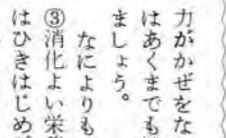 力がかぜをな
はあくまでも
ましょう。
なによりも
③消化よい栄
はひきはじめ